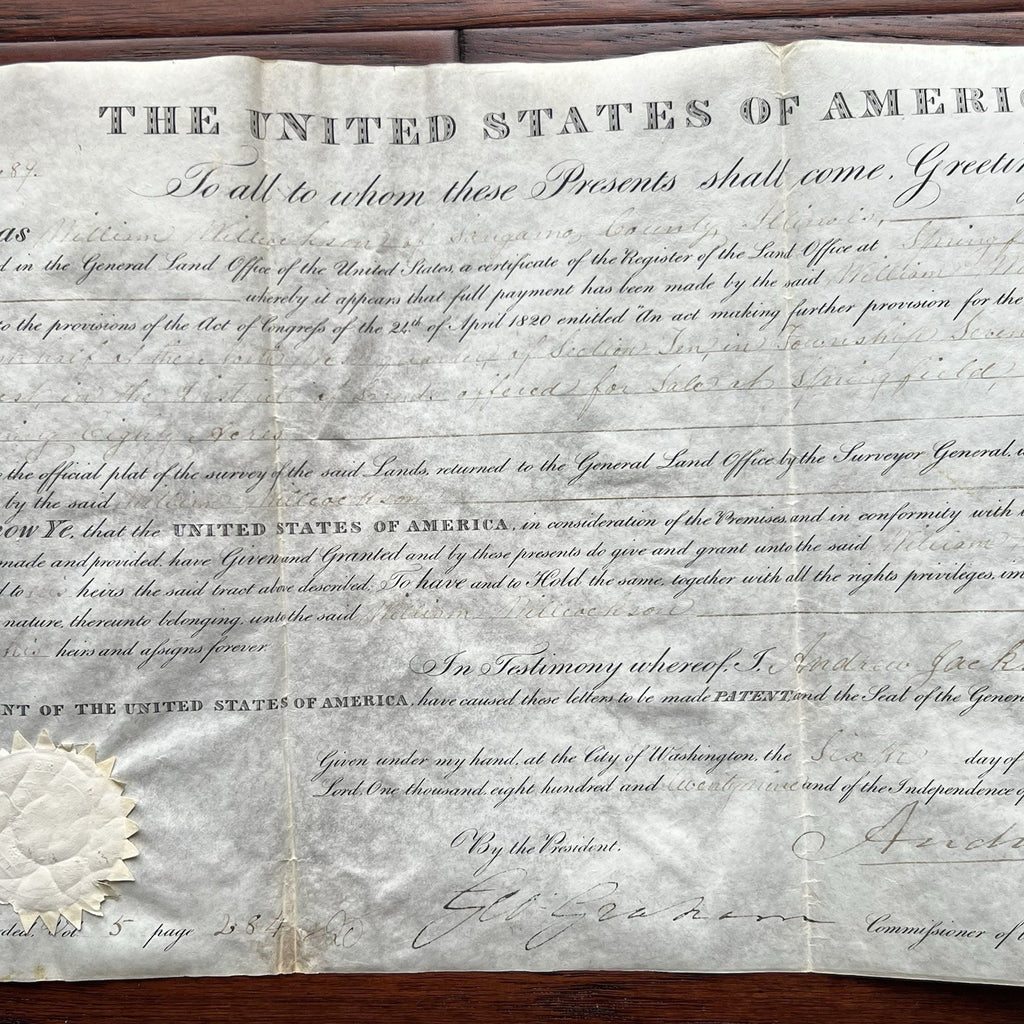 THE UNITED STATES OF AMERIC
89.
To all to whom these Presents shall come, Greetin
as William Willcockson of Sangamo County, Illinois,
d in the General Land Office of the United States, a certificate of the Register of the Land Office at Springf
whereby it appears that full payment has been made by the said William
to the provisions of the Act of Congress of the 24th of April 1820 entitled "An act making further provision for the
half of the quarter, of Section Ten, in Township Seven
in the District of Lands offered for Sale at Springfield,
Eighty Acres
the official plat of the survey of the said Lands, returned to the General Land Office by the Surveyor General,
by the said William Willcockson
ow Ye, that the UNITED STATES OF AMERICA, in consideration of the Premises, and in conformity with
made and provided, have Given and Granted and by these presents do give and grant unto the said William
d to his heirs the said tract above described: To have and to Hold the same, together with all the rights privileges, im
nature, thereunto belonging, unto the said William Willcockson
his heirs and assigns forever.
In Testimony whereof, I, Andrew Jack
NT OF THE UNITED STATES OF AMERICA, have caused these letters to be made PATENT and the Seal of the Gener
Given under my hand, at the City of Washington, the Sixth day of
Lord, One thousand eight hundred and twenty nine and of the Independence of
By the President. Andr
Geo: Graham Commissioner of
rded, Vol 5 page 284